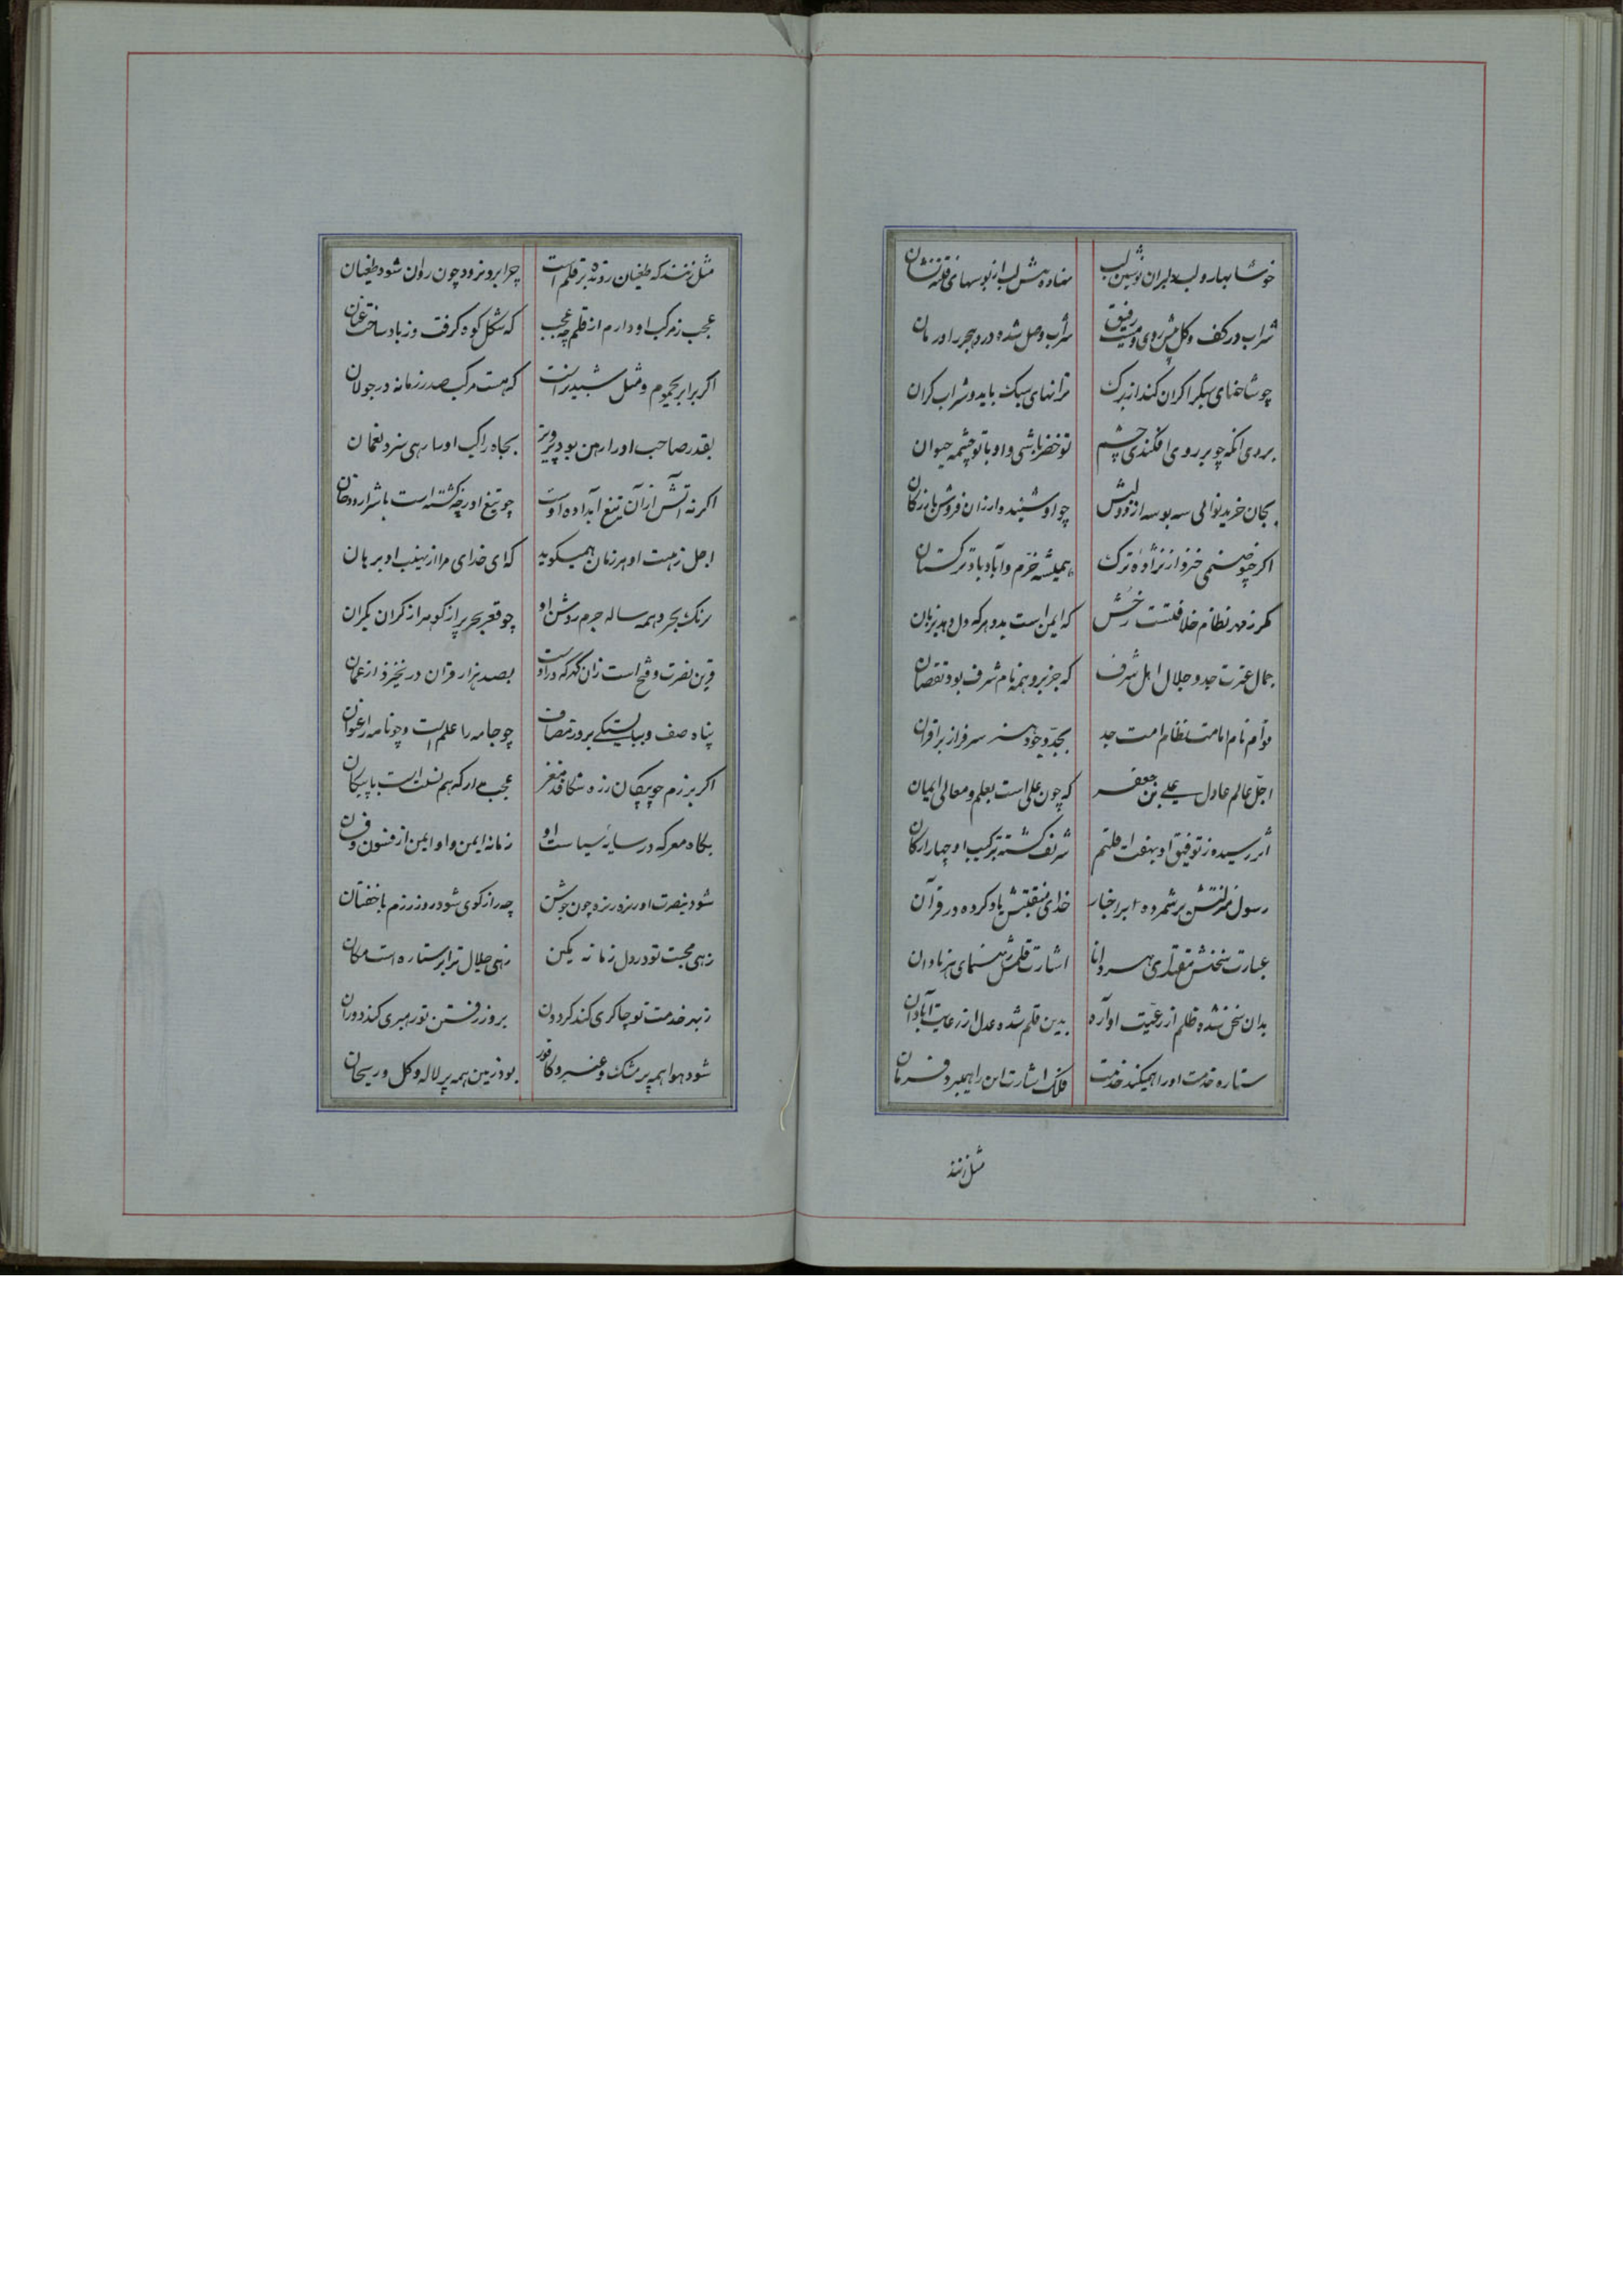 خوشا بهار و لب دلبران نوشین لب
نهاده بش لب از بوسهای فتنه نشان
شراب در کف و کل پیش روی و مست رفیق
شراب وصل شده درد هجر را درمان
چو شاخهای سبکرا کران کند از برک
ترانهای سبک باید و شراب کران
بروی انکه چو بر روی افکندی چشم
تو خضر باشی و او با تو چشمه حیوان
بجان خرید توانی سه بوسه از دو لبش
چو او شنیده وارزان فروش بازرکان
اکر چنو صنمی خیزد از نژاده ترک
همیشه خرّم و آباد باد ترکستان
مکر ز مهر نظام خلافتست رخش
که ایمن است بدو هرکه دل دهد بزبان
جمال عترت جد و جلال اهل شرف
که جز برو همه نام شرف بود نقصان
قوام نام امامت نظام امت جد
بجدّ و جود و هنر سرفراز بر اقران
اجلّ عالم عادل علی بن جعفر
که چون علی است بعلم و معالی ایمان
اثر رسیده ز توفیق او بهفت اقلیم
شرف کشته ترکیب او چهار ارکان
رسول منزلتش برشمرده در اخبار
خدای منقبتش یاد کرده در قرآن
عبارت سخنش مقتدای هر دانا
اشارت قلمش رهنمای هر نادان
بدان سخن شده ظلم از رعیّت آواره
بدین قلم شده عدل از رعایت آبادان
ستاره خدمت او را همیکند خدمت
فلک اشارت این را همیبرد فرمان
مثل زنند
مثل زنند که طغیان رونده بر قلم است
چرا برو نرود چون روان شود طغیان
عجب ز مرکب او دارم از قلم چه عجب
که شکل کوه کرفت و ز باد ساخت عنان
اکر برابر یحموم و مثل شبدیز است
که هست مرکب صدر زمانه در جولان
بقدر صاحب او را رهین بود پرویز
بجاه راکب او را رهی سزد نعمان
اکر نه آتش از آن تیغ آبداده اوست
چو تیغ او ز چه کشته است با شرار و دخان
اجل ز هیبت او هر زمان همیکوید
که ای خدای مرا از نهیب او برهان
برنک بحر و همه ساله جرم روشن او
چو قعر بحر پر از کوهر از کران بکران
قرین نصرت و فتح است زان کهر که در اوست
بصد هزار قران در نخیزد از عمان
پناه صف و ببایستکی بروز مصاف
چو جامه را علم است و چو نامه را عنوان
اکر برزم چو پیکان زره شکافد مغفر
عجب مدار که هم نسبت است با پیکان
بکاه معرکه در سایهٔ سیاست او
زمانه ایمن و او ایمن از فسون و فسان
شود ز نصرت او ریزه ریزه چون جوشن
چه راز کوی شود روز رزم با خفتان
زهی محبت تو در دل زمانه مکین
زهی جلال ترا بر ستاره است مکان
ز بهر خدمت تو چاکری کند کردون
بروز رفتن تو رهبری کند دوران
شود هوا همه پر مشک و عنبر و کافور
بود زمین همه پر لاله و کل و ریحان